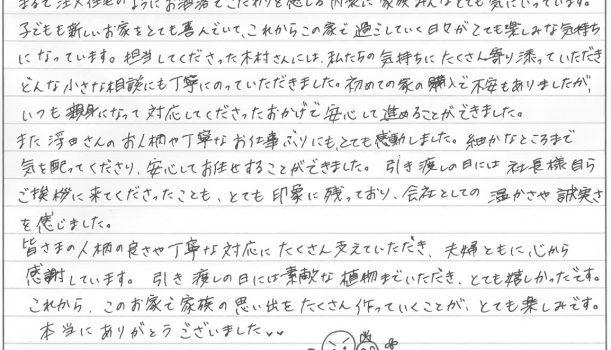 まるで注文住宅のようにお洒落でこだわりを感じる内装に家族みんなとても気に入っています。
子どもも新しいお家をとても喜んでいて、これからこの家で過ごしていく日々がとても楽しみな気持ち
になっています。担当してくださった木村さんには、私たちの気持ちにたくさん寄り添っていただき
どんな小さな相談にも丁寧にのっていただきました。初めての家の購入で不安もありましたが、
いつも親身になって対応してくださったおかげで安心して進めることができました。
また浮田さんのお人柄や丁寧なお仕事ぶりにも、とても感動しました。細かなところまで
気を配ってくださり、安心してお任せすることができました。引き渡しの日には社長様自ら
ご挨拶に来てくださったことも、とても印象に残っており、会社としての温かさや誠実さ
を感じました。
皆さまの人柄の良さや丁寧な対応にたくさん支えていただき、夫婦ともに心から
感謝しています。引き渡しの日には素敵な植物までいただき、とても嬉しかったです。
これから、このお家で家族の思い出をたくさん作っていくことが、とても楽しみです。
本当にありがとうございました♡♡